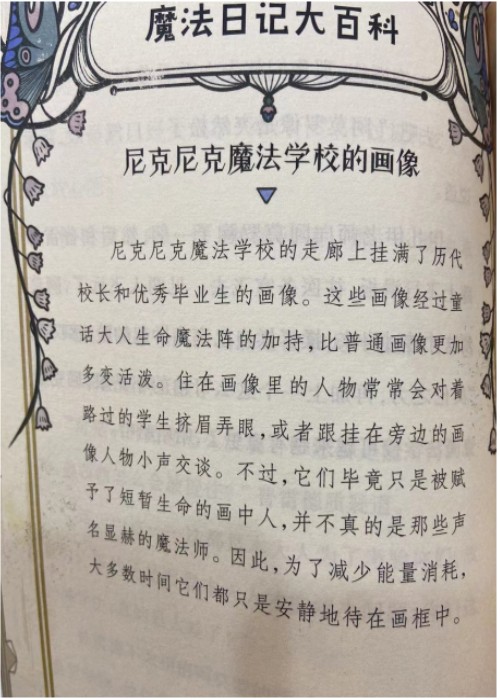 魔法日记大百科
尼克尼克魔法学校的画像
尼克尼克魔法学校的走廊上挂满了历代
校长和优秀毕业生的画像。这些画像经过童
话大人生命魔法阵的加持，比普通画像更加
多变活泼。住在画像里的人物常常会对着
路过的学生挤眉弄眼，或者跟挂在旁边的画
像人物小声交谈。不过，它们毕竟只是被赋
予了短暂生命的画中人，并不真的是那些声
名显赫的魔法师。因此，为了减少能量消耗，
大多数时间它们都只是安静地待在画框中。